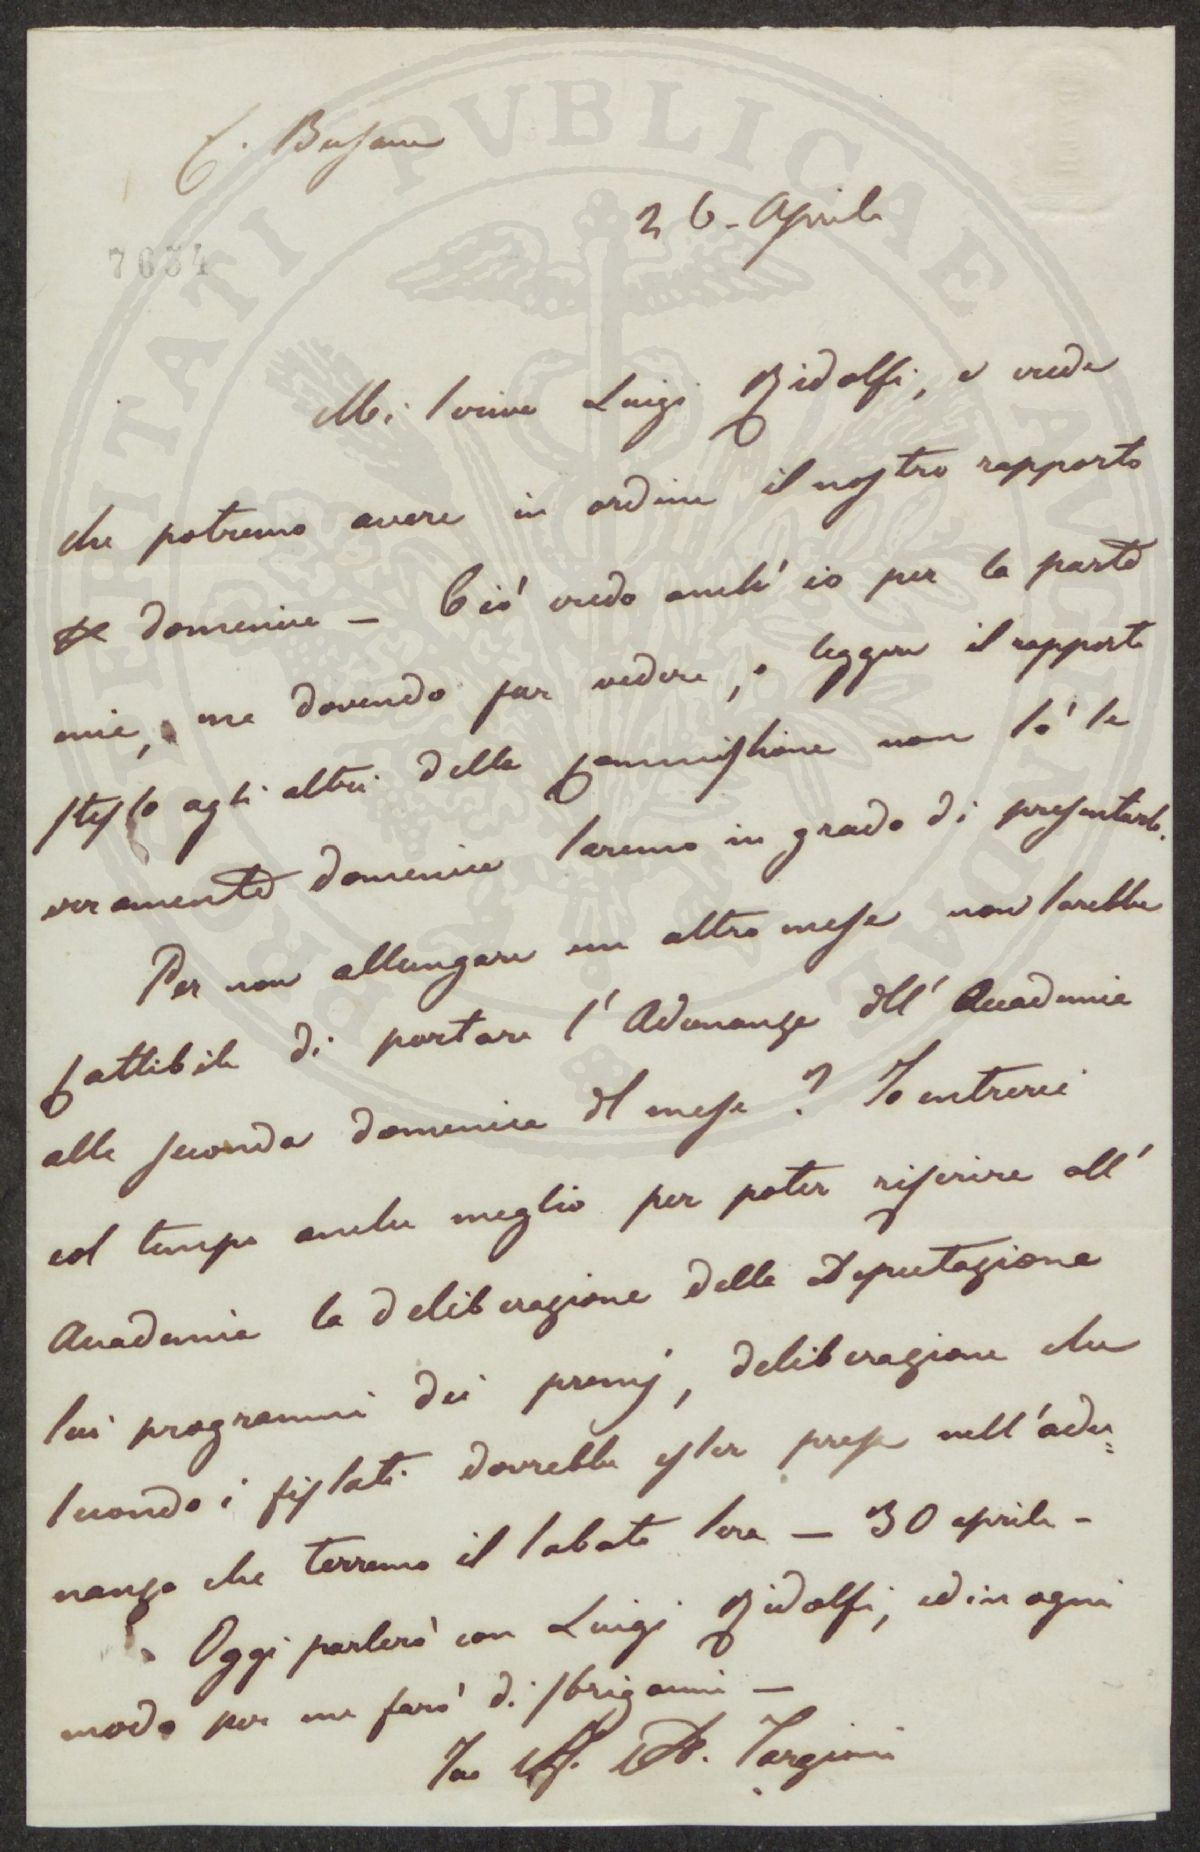 C. Busacca
26. Aprile
7634
Mi scrive Luigi Ridolfi, e crede
che potremo avere in ordine il nostro rapporto
domenica — Ciò credo anch' io per la parte
mia, ma dovendo far vedere, o leggere il rapporto
stesso agli altri della Commissione non so se
veramente domenica saremo in grado di presentarlo.
Per non allungare un altro mese non sarebbe
fattibile di portare l' Adunanza dell' Accademia
alla seconda domenica del mese? Io entrerei
col tempo anche meglio per poter riferire all'
Accademia la deliberazione della Deputazione
sui programmi dei premj, deliberazione che
secondo i fissati dovrebbe esser presa nell' adu=
nanza che terremo il sabato sera — 30 aprile -
Oggi parlerò con Luigi Ridolfi, ed in ogni
modo per me farò di sbrigarmi —
Suo Aff. A. Targioni
PROSPERITATI PVBLICAE AVGENDAE